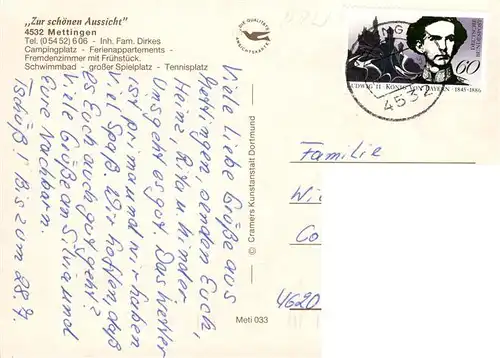 "Zur schönen Aussicht"
4532 Mettingen
Tel. (0 54 52) 6 06 - Inh. Fam. Dirkes
Campingplatz - Ferienappartements -
Fremdenzimmer mit Frühstück.
Schwimmbad - großer Spielplatz - Tennisplatz
DIE QUALITÄTS
ANSICHTSKARTE
Viele Liebe Grüße aus
Mettingen, senden Euch,
Heinz, Rita u. Kinder.
Uns geht es gut. Das Wetter
ist prima und wir haben
viel Spaß. Wir hoffen, daß
es Euch auch gut geht?
Viele Grüße an Silvia und
Eure Nachbarn.
Tschüß! Bis zum 28.7.
© Cramers Kunstanstalt Dortmund
Meti 033
DEUTSCHE
BUNDESPOST
60
LUDWIG II · KÖNIG VON BAYERN · 1845-1886
4532
Familie
Wi
Co
4620